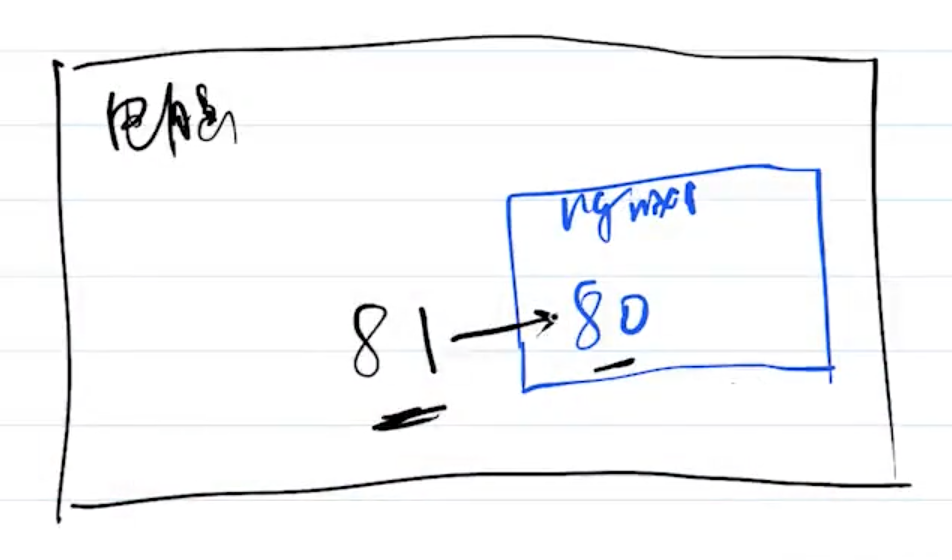 电脑
nginx1
81
80